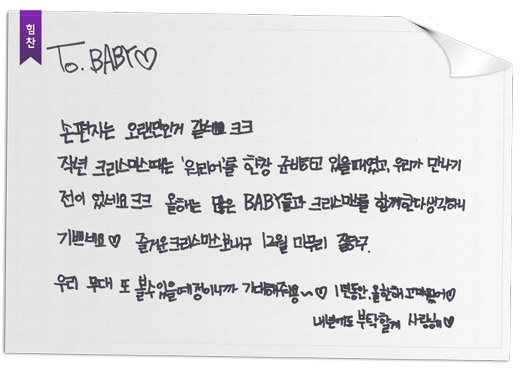 힘찬
To. BABY♡
손편지는 오랜만인거 같네요 크크
작년 크리스마스때는 '워리어'를 한창 준비하고 있을때였고, 우리가 만나기
전이 었네요 크크 올해는 많은 BABY들과 크리스마스를 함께한다 생각하니
기쁘네요♡ 즐거운 크리스마스보내구 12월 마무리 잘하구.
우리 무대 또 볼수있을예정이니까 기대해줘용~♡ 1년동안, 올한해 고마웠어♡
내년에도 부탁할게 사랑해♡